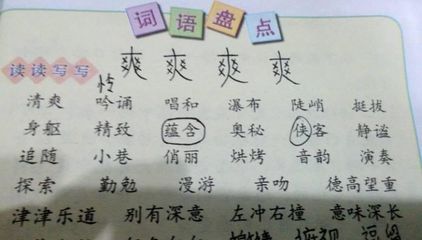 词语盘点
爽 爽 爽 爽
读读写写
怜
清爽 吟诵 唱和 瀑布 陡峭 挺拔
身躯 精致 蕴含 奥秘 侠客 静谧
追随 小巷 俏丽 烘烤 音韵 演奏
探索 勤勉 漫游 亲吻 德高望重
津津乐道 别有深意 左冲右撞 意味深长